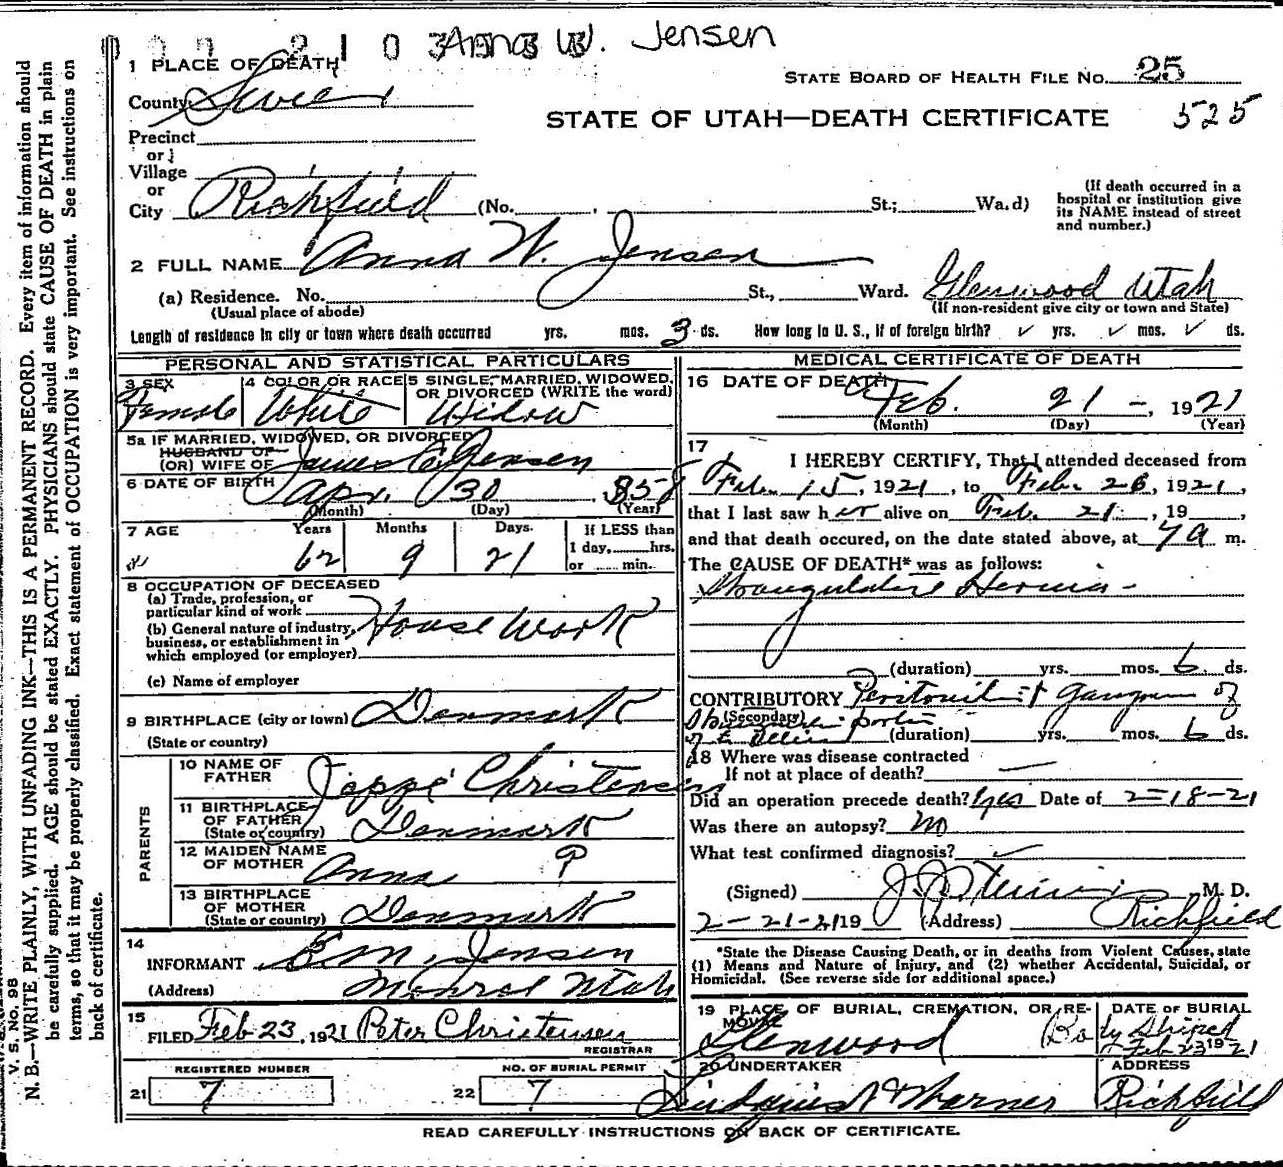 Anna W. Jensen
1 PLACE OF DEATH
STATE BOARD OF HEALTH FILE NO. 25
County Sevier
STATE OF UTAH—DEATH CERTIFICATE 525
Precinct
or
Village
or
City Richfield (No. St.; Wa.d)
(If death occurred in a
hospital or institution give
its NAME instead of street
and number.)
2 FULL NAME Anna W. Jensen
(a) Residence. No. St., Ward. Glenwood Utah
(Usual place of abode) (If non-resident give city or town and State)
Length of residence in city or town where death occurred yrs. mos. 3 ds. How long in U. S., if of foreign birth? ✓ yrs. ✓ mos. ✓ ds.
PERSONAL AND STATISTICAL PARTICULARS
3 SEX
Female
4 COLOR OR RACE
White
5 SINGLE, MARRIED, WIDOWED,
OR DIVORCED (WRITE the word)
Widow
5a IF MARRIED, WIDOWED, OR DIVORCED
HUSBAND OF
(OR) WIFE OF James C Jensen
6 DATE OF BIRTH Apr. 30 1858
(Month) (Day) (Year)
7 AGE Years Months Days
62 9 21
If LESS than
1 day, hrs.
or min.
8 OCCUPATION OF DECEASED
(a) Trade, profession, or
particular kind of work
House Work
(b) General nature of industry,
business, or establishment in
which employed (or employer)
(c) Name of employer
9 BIRTHPLACE (city or town) Denmark
(State or country)
PARENTS
10 NAME OF
FATHER Jeppe Christensen
11 BIRTHPLACE
OF FATHER
(State or country) Denmark
12 MAIDEN NAME
OF MOTHER Anna ?
13 BIRTHPLACE
OF MOTHER
(State or country) Denmark
14
INFORMANT E M. Jensen
(Address) Monroe Utah
15
FILED Feb 23, 1921 Peter Christensen
REGISTRAR
REGISTERED NUMBER
21 7
NO. OF BURIAL PERMIT
22 7
MEDICAL CERTIFICATE OF DEATH
16 DATE OF DEATH
Feb. 21 -, 1921
(Month) (Day) (Year)
17
I HEREBY CERTIFY, That I attended deceased from
Feb. 15, 1921, to Feb. 26, 1921,
that I last saw her alive on Feb. 21, 19 ,
and that death occured, on the date stated above, at 7 a m.
The CAUSE OF DEATH* was as follows:
Strangulated Hernia -
(duration) yrs. mos. 6 ds.
CONTRIBUTORY Peritonitis + Gangren of
(Secondary) portion
of (duration) yrs. mos. 6 ds.
18 Where was disease contracted
If not at place of death? —
Did an operation precede death? Yes Date of 2-18-21
Was there an autopsy? no
What test confirmed diagnosis? ✓
(Signed) M. D.
2-21-21 19 (Address) Richfield
*State the Disease Causing Death, or in deaths from Violent Causes, state
(1) Means and Nature of Injury, and (2) whether Accidental, Suicidal, or
Homicidal. (See reverse side for additional space.)
19 PLACE OF BURIAL, CREMATION, OR RE-
MOVAL
Glenwood Body Shiped
DATE OF BURIAL
Feb 23 1921
20 UNDERTAKER
Warner
ADDRESS
Richfield
READ CAREFULLY INSTRUCTIONS ON BACK OF CERTIFICATE.
V. S. No. 98
N. B.—WRITE PLAINLY, WITH UNFADING INK—THIS IS A PERMANENT RECORD. Every item of information should
be carefully supplied. AGE should be stated EXACTLY. PHYSICIANS should state CAUSE OF DEATH in plain
terms, so that it may be properly classified. Exact statement of OCCUPATION is very important. See instructions on
back of certificate.